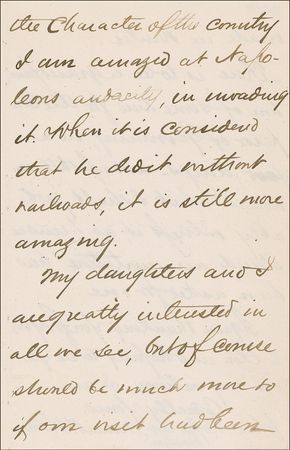 the Character of the country
I am amazed at Napo-
leons audacity, in invading
it. When it is considered
that he did it without
railroads, it is still more
amazing.
My daughters and I
are greatly interested in
all we see, but of course
should be much more so
if our visit had been